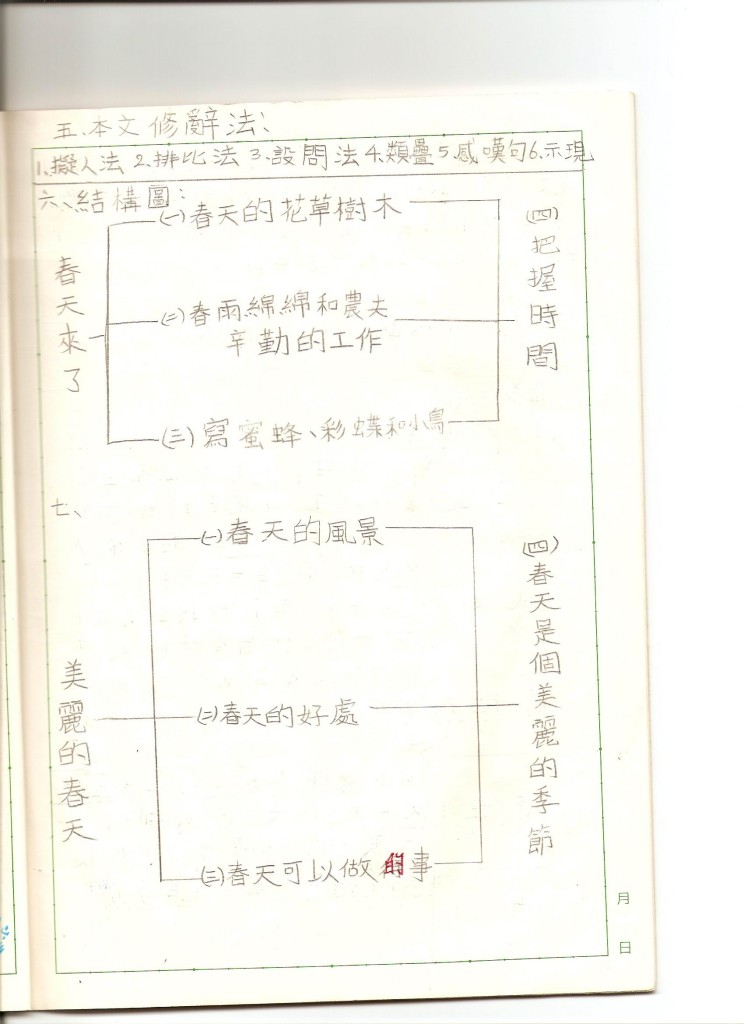 五、本文修辭法:
1.擬人法 2.排比法 3.設問法 4.類疊 5.感嘆句 6.示現
六、結構圖:
春天來了
(一)春天的花草樹木
(二)春雨綿綿和農夫
辛勤的工作
(三)寫蜜蜂、彩蝶和小鳥
(四)把握時間
七、
美麗的春天
(一)春天的風景
(二)春天的好處
(三)春天可以做的事
(四)春天是個美麗的季節
月
日